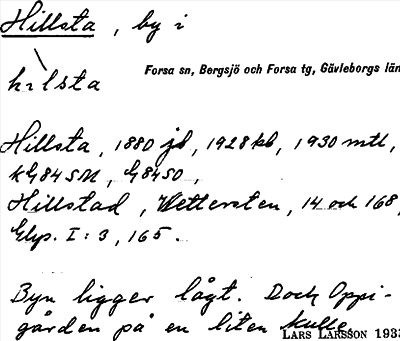 Hillsta, by i
hilsta
Forsa sn, Bergsjö och Forsa tg, Gävleborgs län
Hillsta, 1880 jb, 1928 kb, 1930 mtl,
KG 84 SN, G 84 SO,
Hillstad, Wettersten, 14 och 168,
Glyp. I: 3, 165.
Byn ligger lågt. Dock Oppi-
gården på en liten kulle.
LARS LARSSON 1933